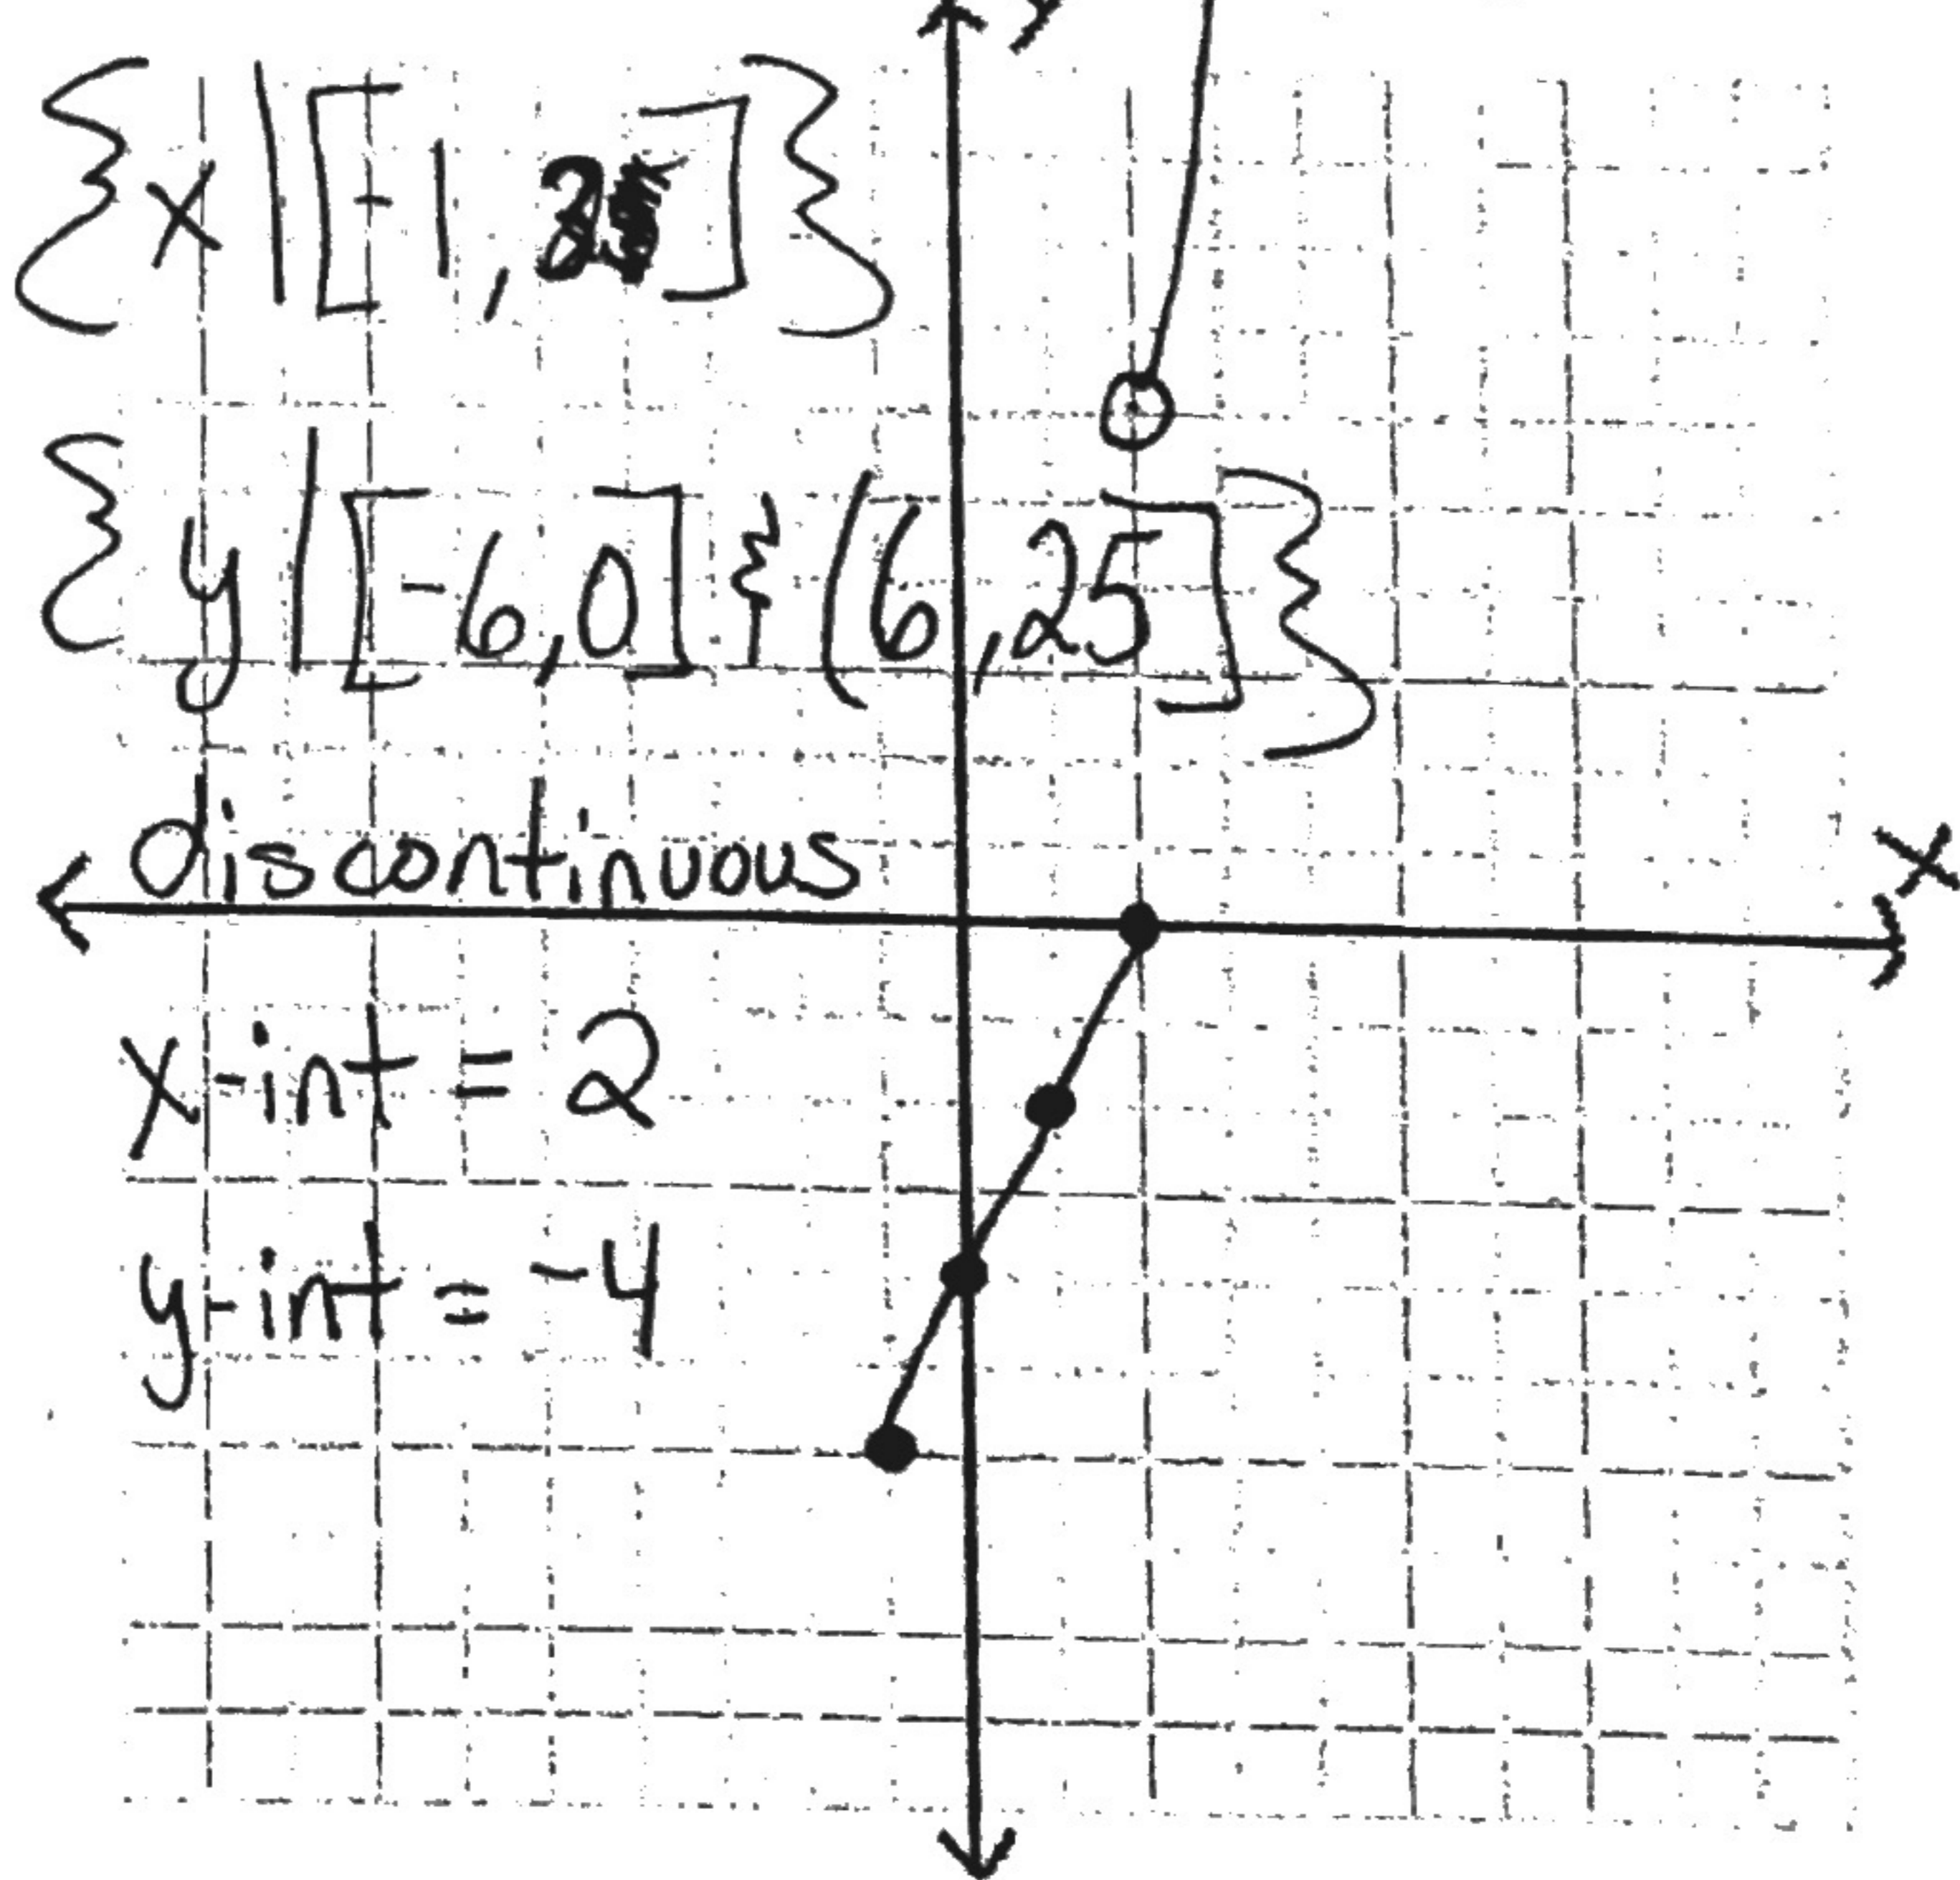 y
{x|[-1, ]}
{y|[-6,0] } (6,25]}
discontinuous
x
x-int = 2
y-int = -4